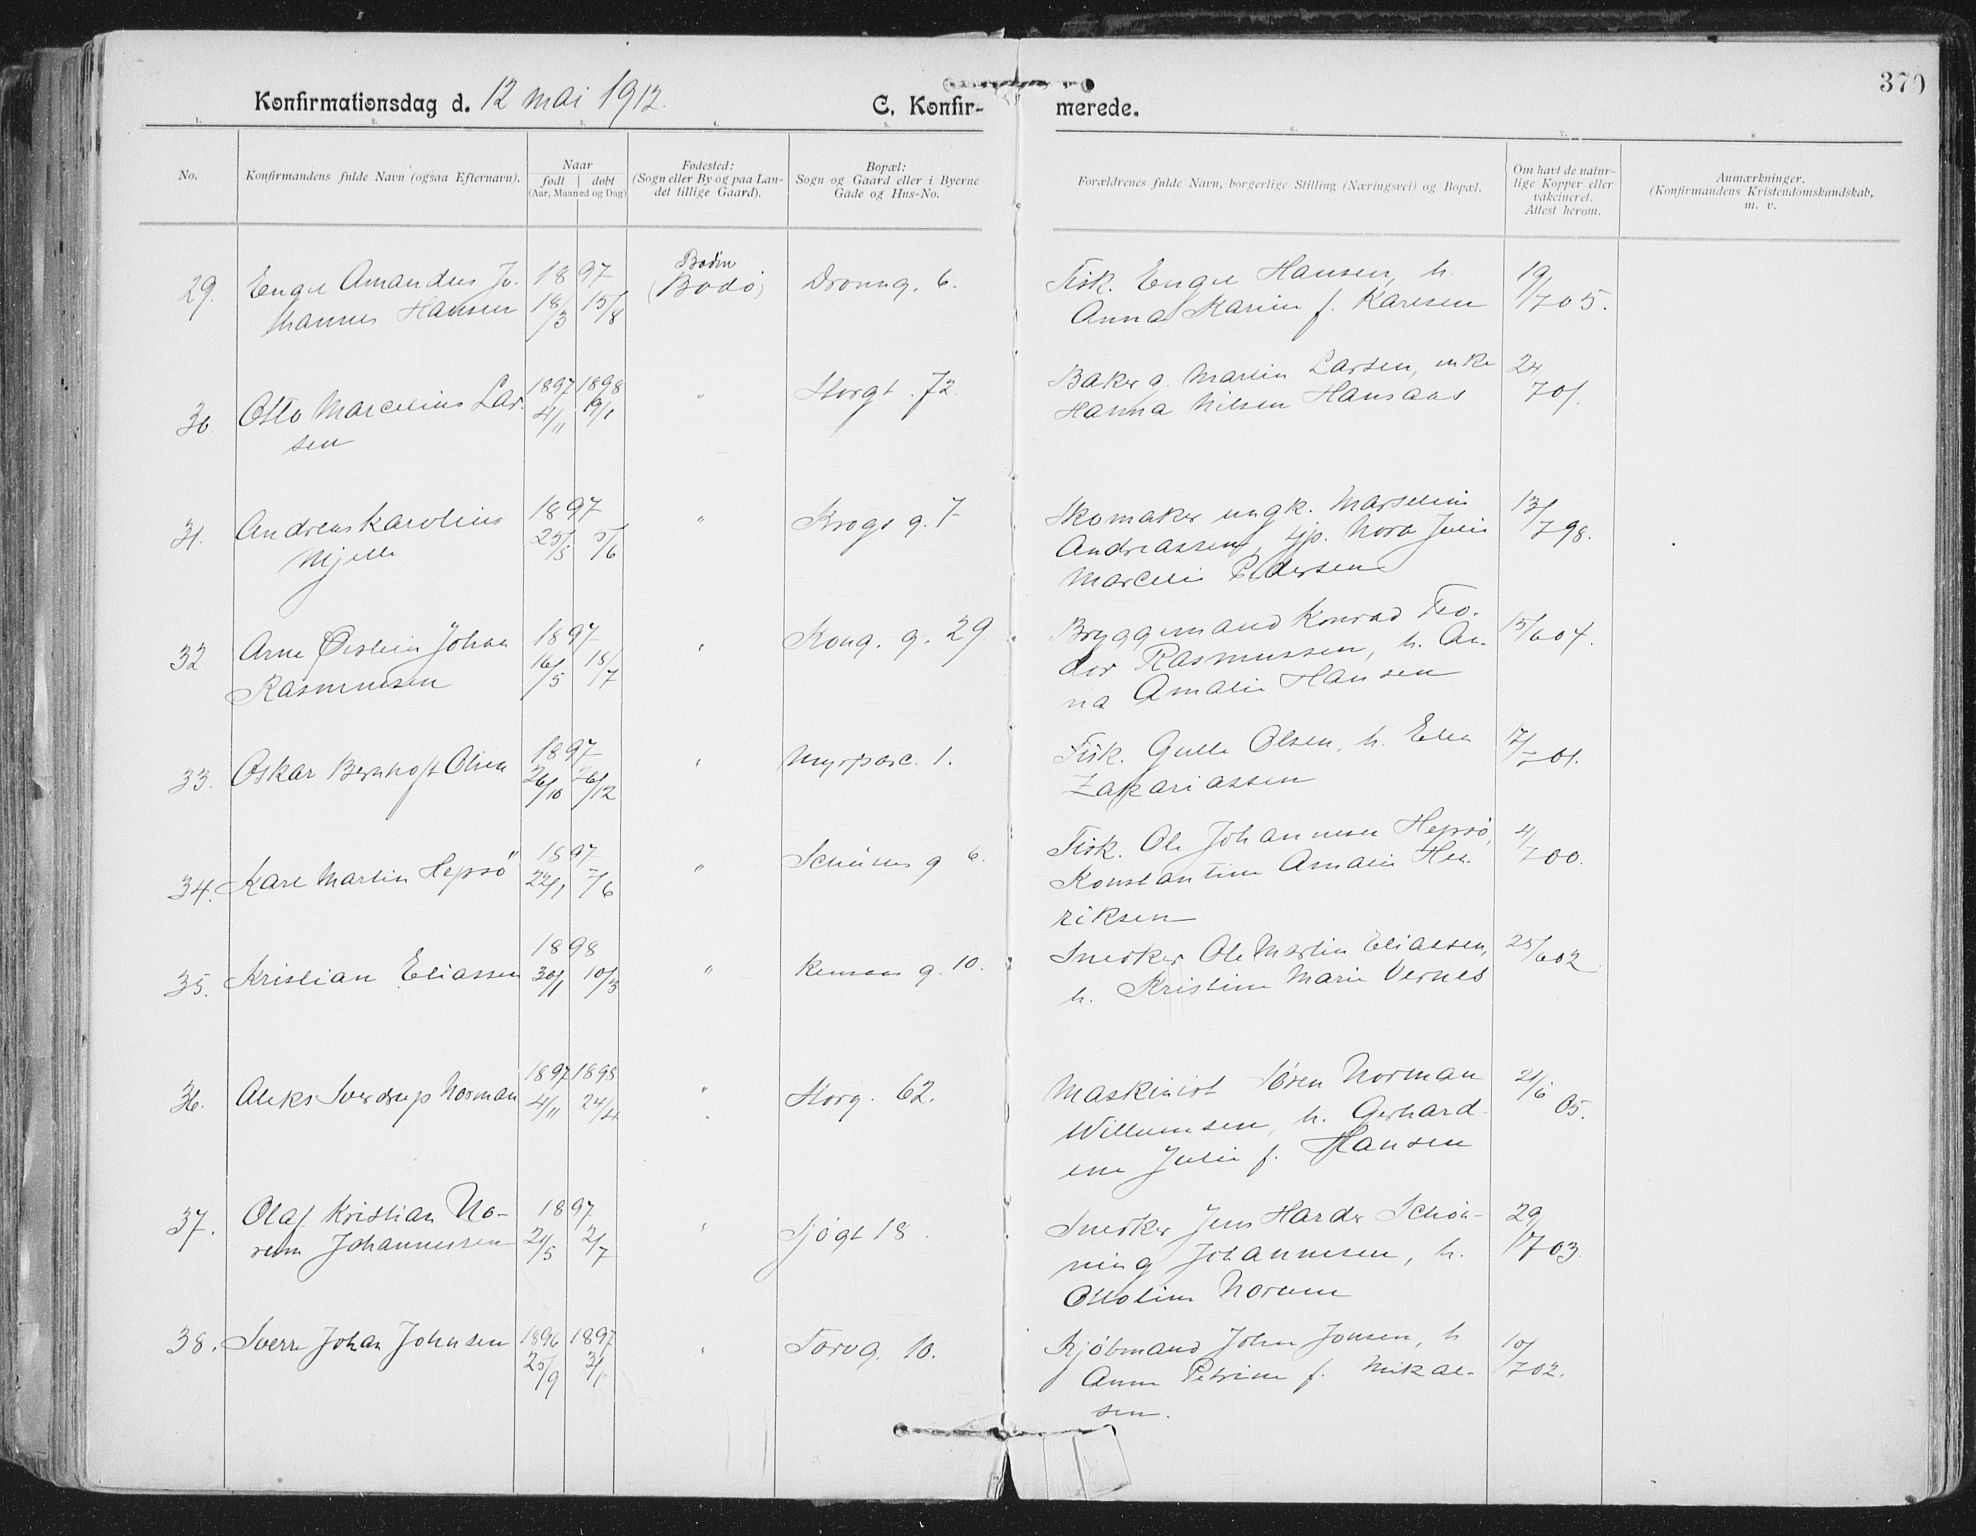 370
Konfirmationsdag d. 12 mai 1912.
C. Konfir- merede.
1. 2. 3. 4. 5. 6. 7. 8.
No.
Konfirmandens fulde Navn (ogsaa Efternavn).
Naar
født døbt
(Aar, Maaned og Dag)
Fødested:
(Sogn eller By og paa Lan-
det tillige Gaard).
Bopæl:
Sogn og Gaard eller i Byerne
Gade og Hus-No.
Forældrenes fulde Navn, borgerlige Stilling (Næringsvei) og Bopæl.
Om havt de natur-
lige Kopper eller
vakcineret.
Attest herom.
Anmærkninger.
(Konfirmandens Kristendomskundskab,
m. v.
29. Engel Amandus Jo-
hannes Hansen
1897
18/3 15/8
Bodin
(Bodø)
Dronng. 6.
Fisk. Engel Hansen, h.
Anna Karine f. Karlsen
19/705.
30. Otto Marcelius Lar-
sen
1897 1898
4/11 19/1
"
Storgt. 72.
Baker g. Martin Larsen, enke
Hanna Nilsen Hansaas
24/701.
31. Andreas Karolius
Mjelle
1897
25/5 5/6
"
Krogs g. 7
Skomaker ungk. Marselius
Andreassen, tjp. Nora Julie
Marcelie Pedersen
13/798.
32. Arne Øistein Johan
Rasmussen
1897
16/5 18/7
"
Kong. g. 29
Bryggemand Konrad Teo-
dor Rasmussen, h. An-
na Amalie Hansen
15/604.
33. Oskar Bernhoft Olsen
1897
26/10 26/12
"
Myrpasc. 1.
Fisk. Gulle Olsen, h. Elen
Zakariassen
17/701.
34. Karl Martin Hepsø
1897
22/1 7/6
"
g 6.
Fisk. Ole Johannesen Hepsø,
Konstantine Amalie Hen-
riksen
4/700.
35. Kristian Eliassen
1898
30/1 10/3
"
Remans g. 10.
Snedker Ole Martin Eliassen,
h. Kristine Marie Vernes
25/602.
36. Aleks Sverdrup Norman
1897 1898
4/11 24/4
"
Storg. 62.
Maskinist Sören Norman
Willumsen, h. Gerhard-
ine Julie f. Hansen
21/6 05.
37. Olaf Kristian No-
rum Johannessen
1897
21/5 2/7
"
Sjøgt 18.
Snedker Jens Harder Schøn-
ning Johannesen, h.
Ottoline Norum
29/703.
38. Sverre Johan Johnsen
1896 1897
25/9 3/1
"
Torvg. 10.
Kjøbmand John Jonsen, h
Anne Petrine f. Mikal-
sen.
10/702.